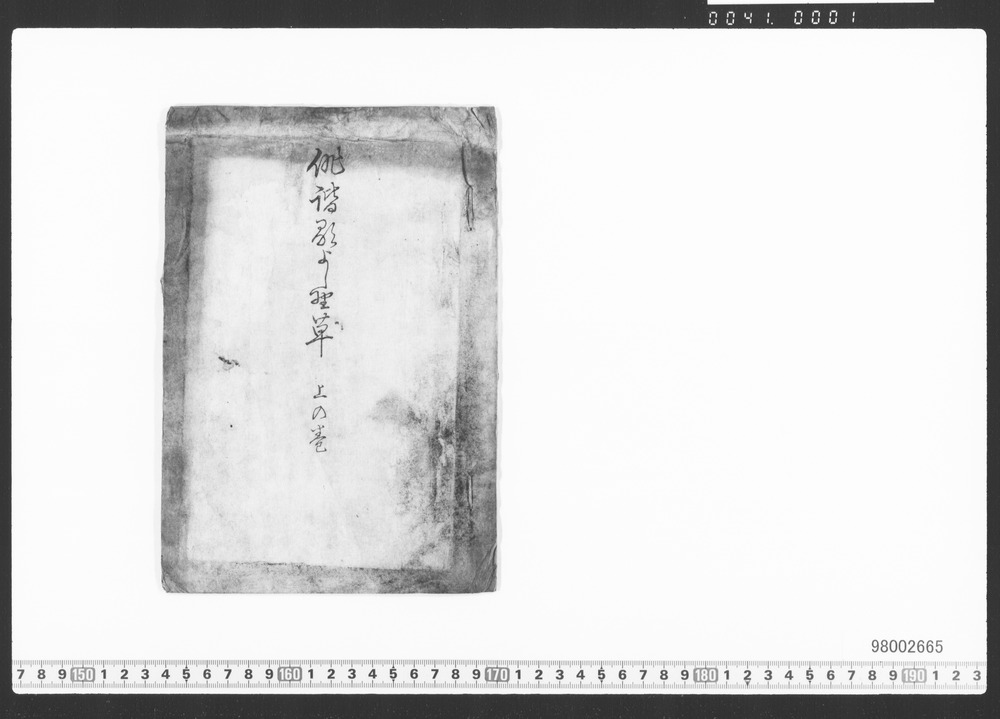 0041. 0001
俳諧歌よし野草 上の巻
98002665
7 8 9 150 1 2 3 4 5 6 7 8 9 160 1 2 3 4 5 6 7 8 9 170 1 2 3 4 5 6 7 8 9 180 1 2 3 4 5 6 7 8 9 190 1 2 3